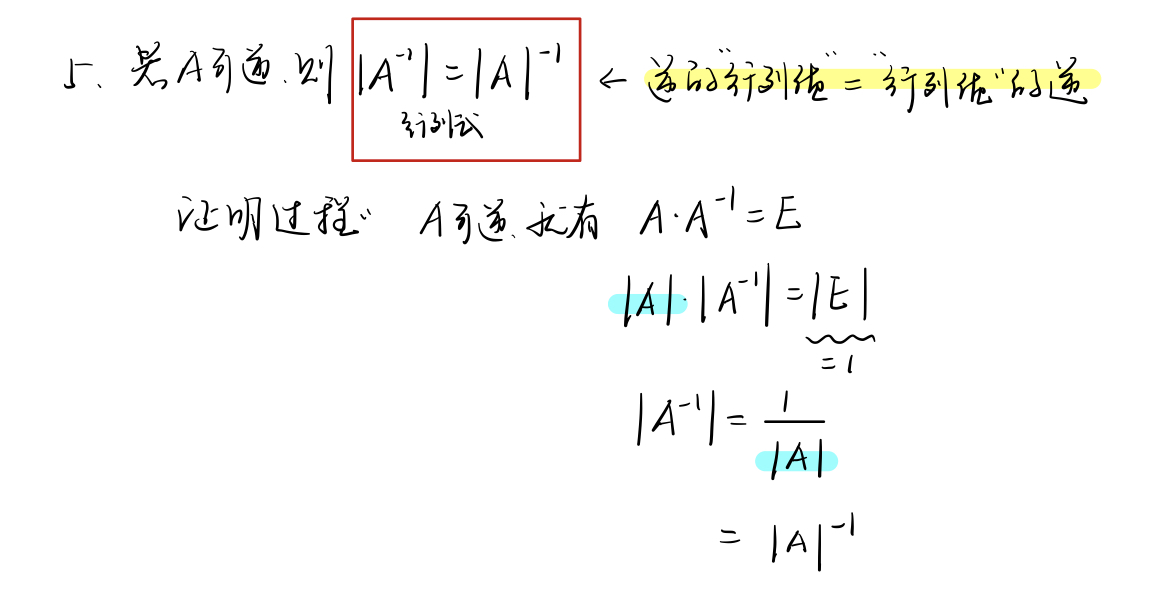 5、若A可逆,则 |A⁻¹| = |A|⁻¹ ← 逆的"行列值" = "行列值"的逆
行列式
证明过程: A可逆、就有 A·A⁻¹ = E
|A|·|A⁻¹| = |E|
= 1
|A⁻¹| = 1/|A|
= |A|⁻¹